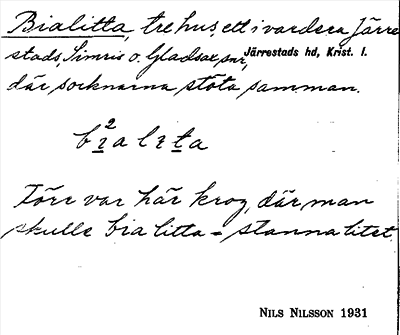 Bialitta, tre hus, ett i vardera Järre-
stads, Simris o. Gladsax snr, Järrestads hd, Krist. l.
där socknarna stöta samman.
b²ɪalɪta
Förr var här krog, där man
skulle bia litta = stanna litet.
NILS NILSSON 1931